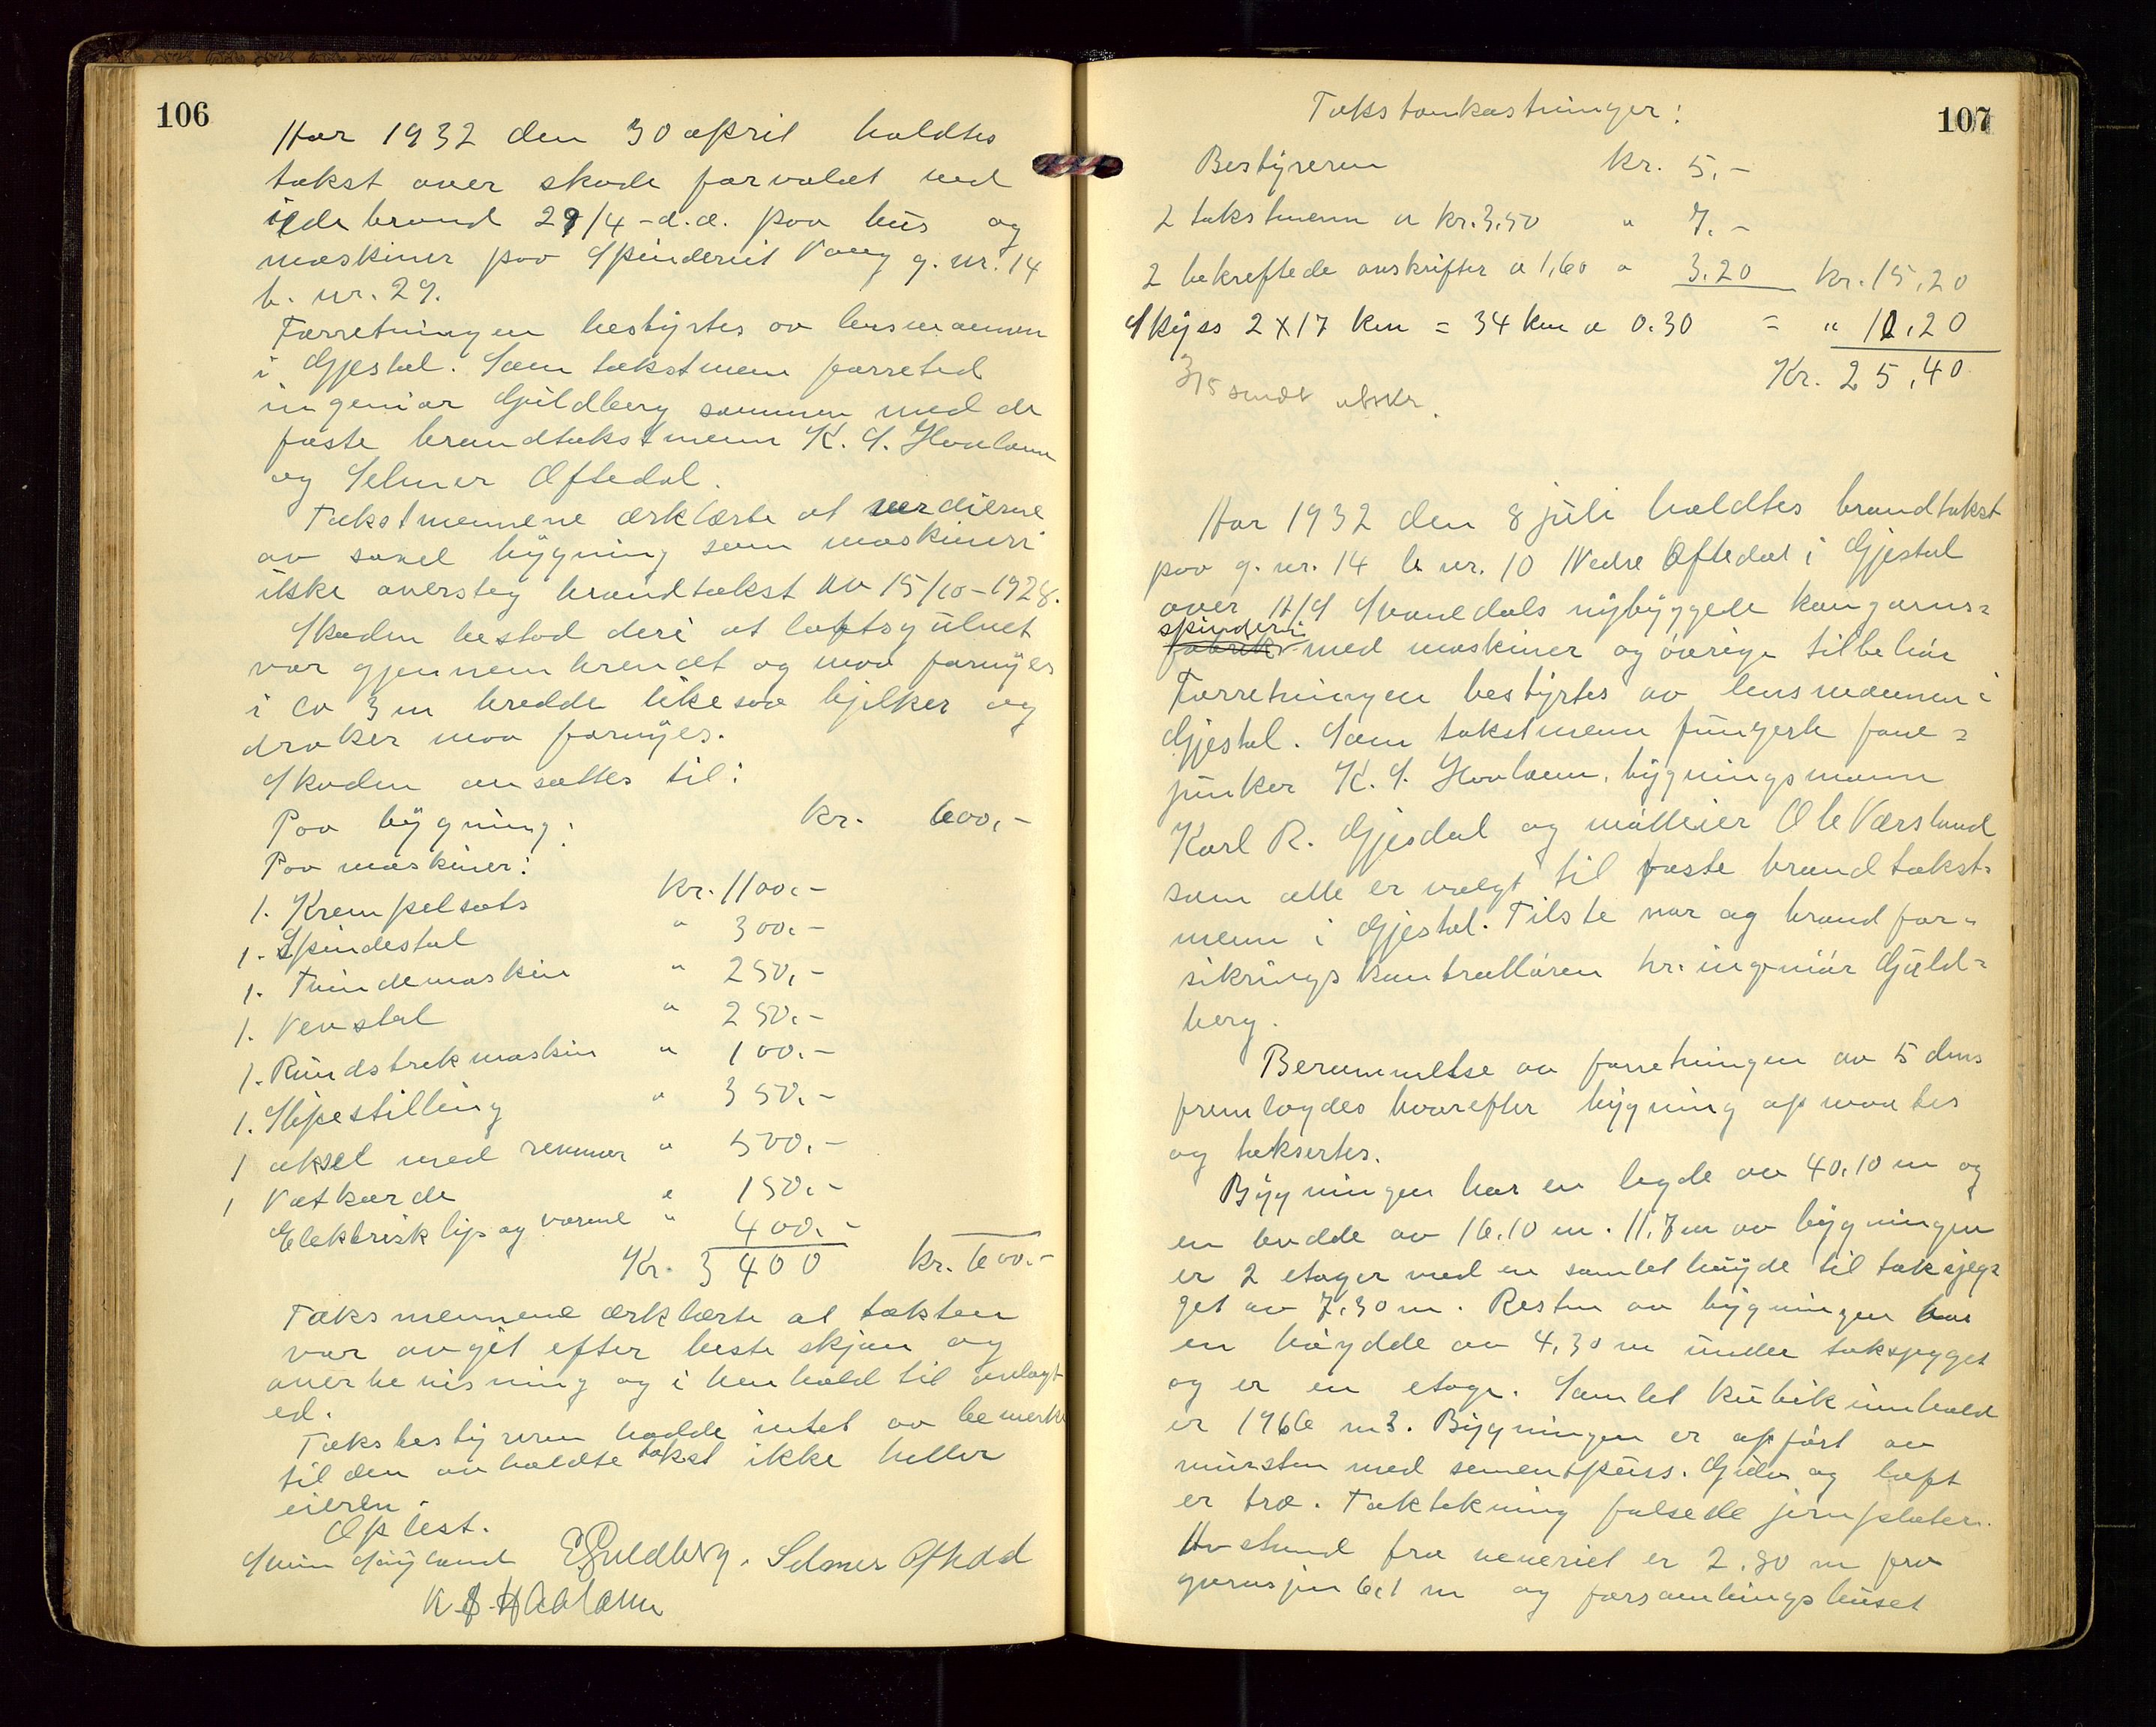 106
Aar 1932 den 30 april holdtes
takst over skade forvoldt ved
ildebrand 29/4 - d.a. paa hus og
maskiner paa Spinderiet Vaag g. nr. 14
b. nr. 29.
Forretningen bestyrtes av lensmannen
i Gjestal. Som takstmenn forrettet
ingeniør Guldberg sammen med de
faste brandtakstmenn K. S. Haaland
og Selmer Oftedal.
Takstmennene erklærte at verdierne
av saavel bygning som maskineri
ikke oversteg brandtakst av 15/10-1928.
Skaden bestod deri at loftsgulvet
var gjennembrendt og maa fornyes
i ca 3 m bredde likesaa bjelker og
draker maa fornyes.
Skaden ansattes til:
Paa bygning: kr. 600,-
Paa maskiner:
1. Krempelsats kr. 1100.-
1. Spindestol " 300.-
1. Tvindemaskin " 250,-
1. Vevstol " 250.-
1. Rundstrekmaskin " 100.-
1. Slipestilling " 350.-
1 aksel med remmer " 500.-
1 Vatkarde " 150.-
Elektrisk lys og varme " 400.-
Kr. 3400 kr. 600.-
Taksmennene erklærte at taksten
var avgit efter beste skjøn og
overbevisning og i henhold til avlagt
ed.
Takstbestyreren hadde intet av bemerke
til den avholdte takst ikke heller
eieren.
Oplest.
Svein Søyland E Guldberg. Selmer Oftedal
K. S. Haaland
107
Takstomkostninger:
Bestyreren kr. 5.-
2 takstmenn a kr. 3.50 " 7.-
2 bekreftede avskrifter a 1,60 " 3.20 kr. 15,20
Skyss 2 x 17 km = 34 km a 0.30 = " 10,20
Kr. 25,40
3/5 sendt utskr.
Aar 1932 den 8 juli holdtes brandtakst
paa g. nr. 14 b nr. 10 Nedre Oftedal i Gjestal
over A/S Svaneldals nybyggede kamgarns=
spinderi
fabrik med maskiner og øvrige tilbehør
Forretningen bestyrtes av lensmannen i
Gjestal. Som takstmenn fungerte fane=
junker K. S. Haaland, bygningsmann
Karl R. Gjesdal og mølleier Ole Værsland
som alle er valgt til faste brandtakst=
menn i Gjestal. Tilste var og brandfor=
sikringskontrolløren hr. ingeniør Guld=
berg.
Berammelse av forretningen av 5 dms
fremlagdes hvorefter bygning opmaaltes
og taksertes.
Bygningen har en legde av 40,10 m og
en bredde av 16.10 m. 11,7 m av bygningen
er 2 etager med en samlet høyde til takskjeg=
get av 7,30 m. Resten av bygningen har
en høydde av 4,30 m under takskjegget
og er en etage. Samlet kubikinnhold
er 1966 m3. Bygningen er opført av
mursten med sementpuss. Gulv og loft
er tre. Taktekning falsede jernplater.
Avstand fra veveriet er 2.80 m fra
6,1 m og forsamlingshuset